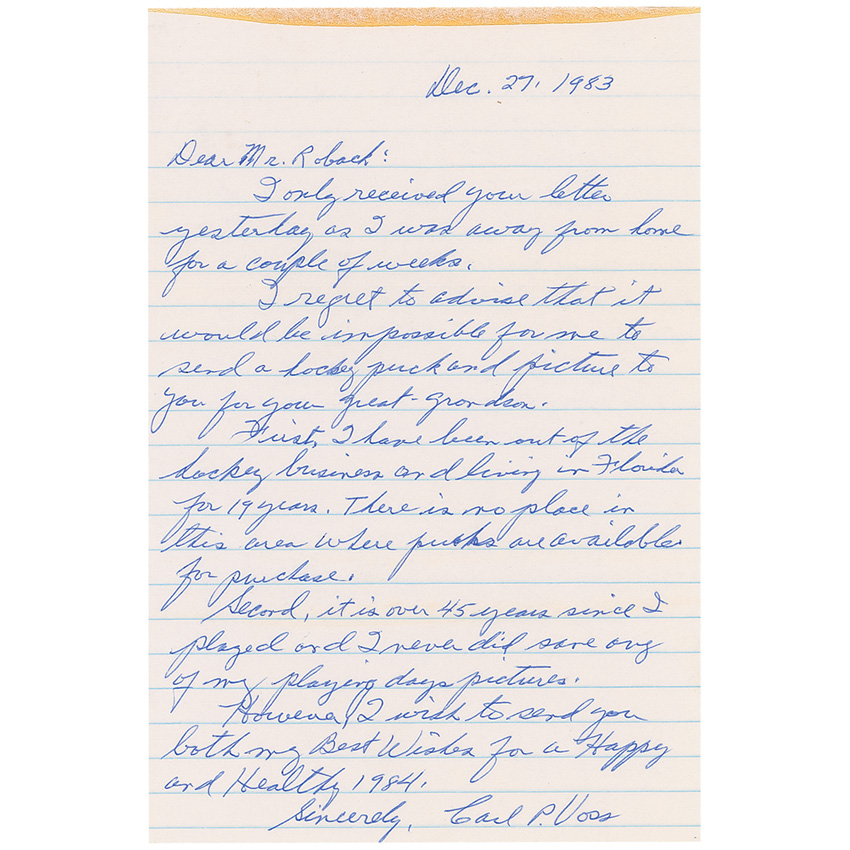 Dec. 27, 1983
Dear Mr. Roback:
I only received your letter
yesterday as I was away from home
for a couple of weeks.
I regret to advise that it
would be impossible for me to
send a hockey puck and picture to
you for your great-grandson.
First, I have been out of the
hockey business and living in Florida
for 19 years. There is no place in
this area where pucks are available
for purchase.
Second, it is over 45 years since I
played and I never did save any
of my playing days pictures.
However, I wish to send you
both my Best Wishes for a Happy
and Healthy 1984.
Sincerely, Carl P. Voss